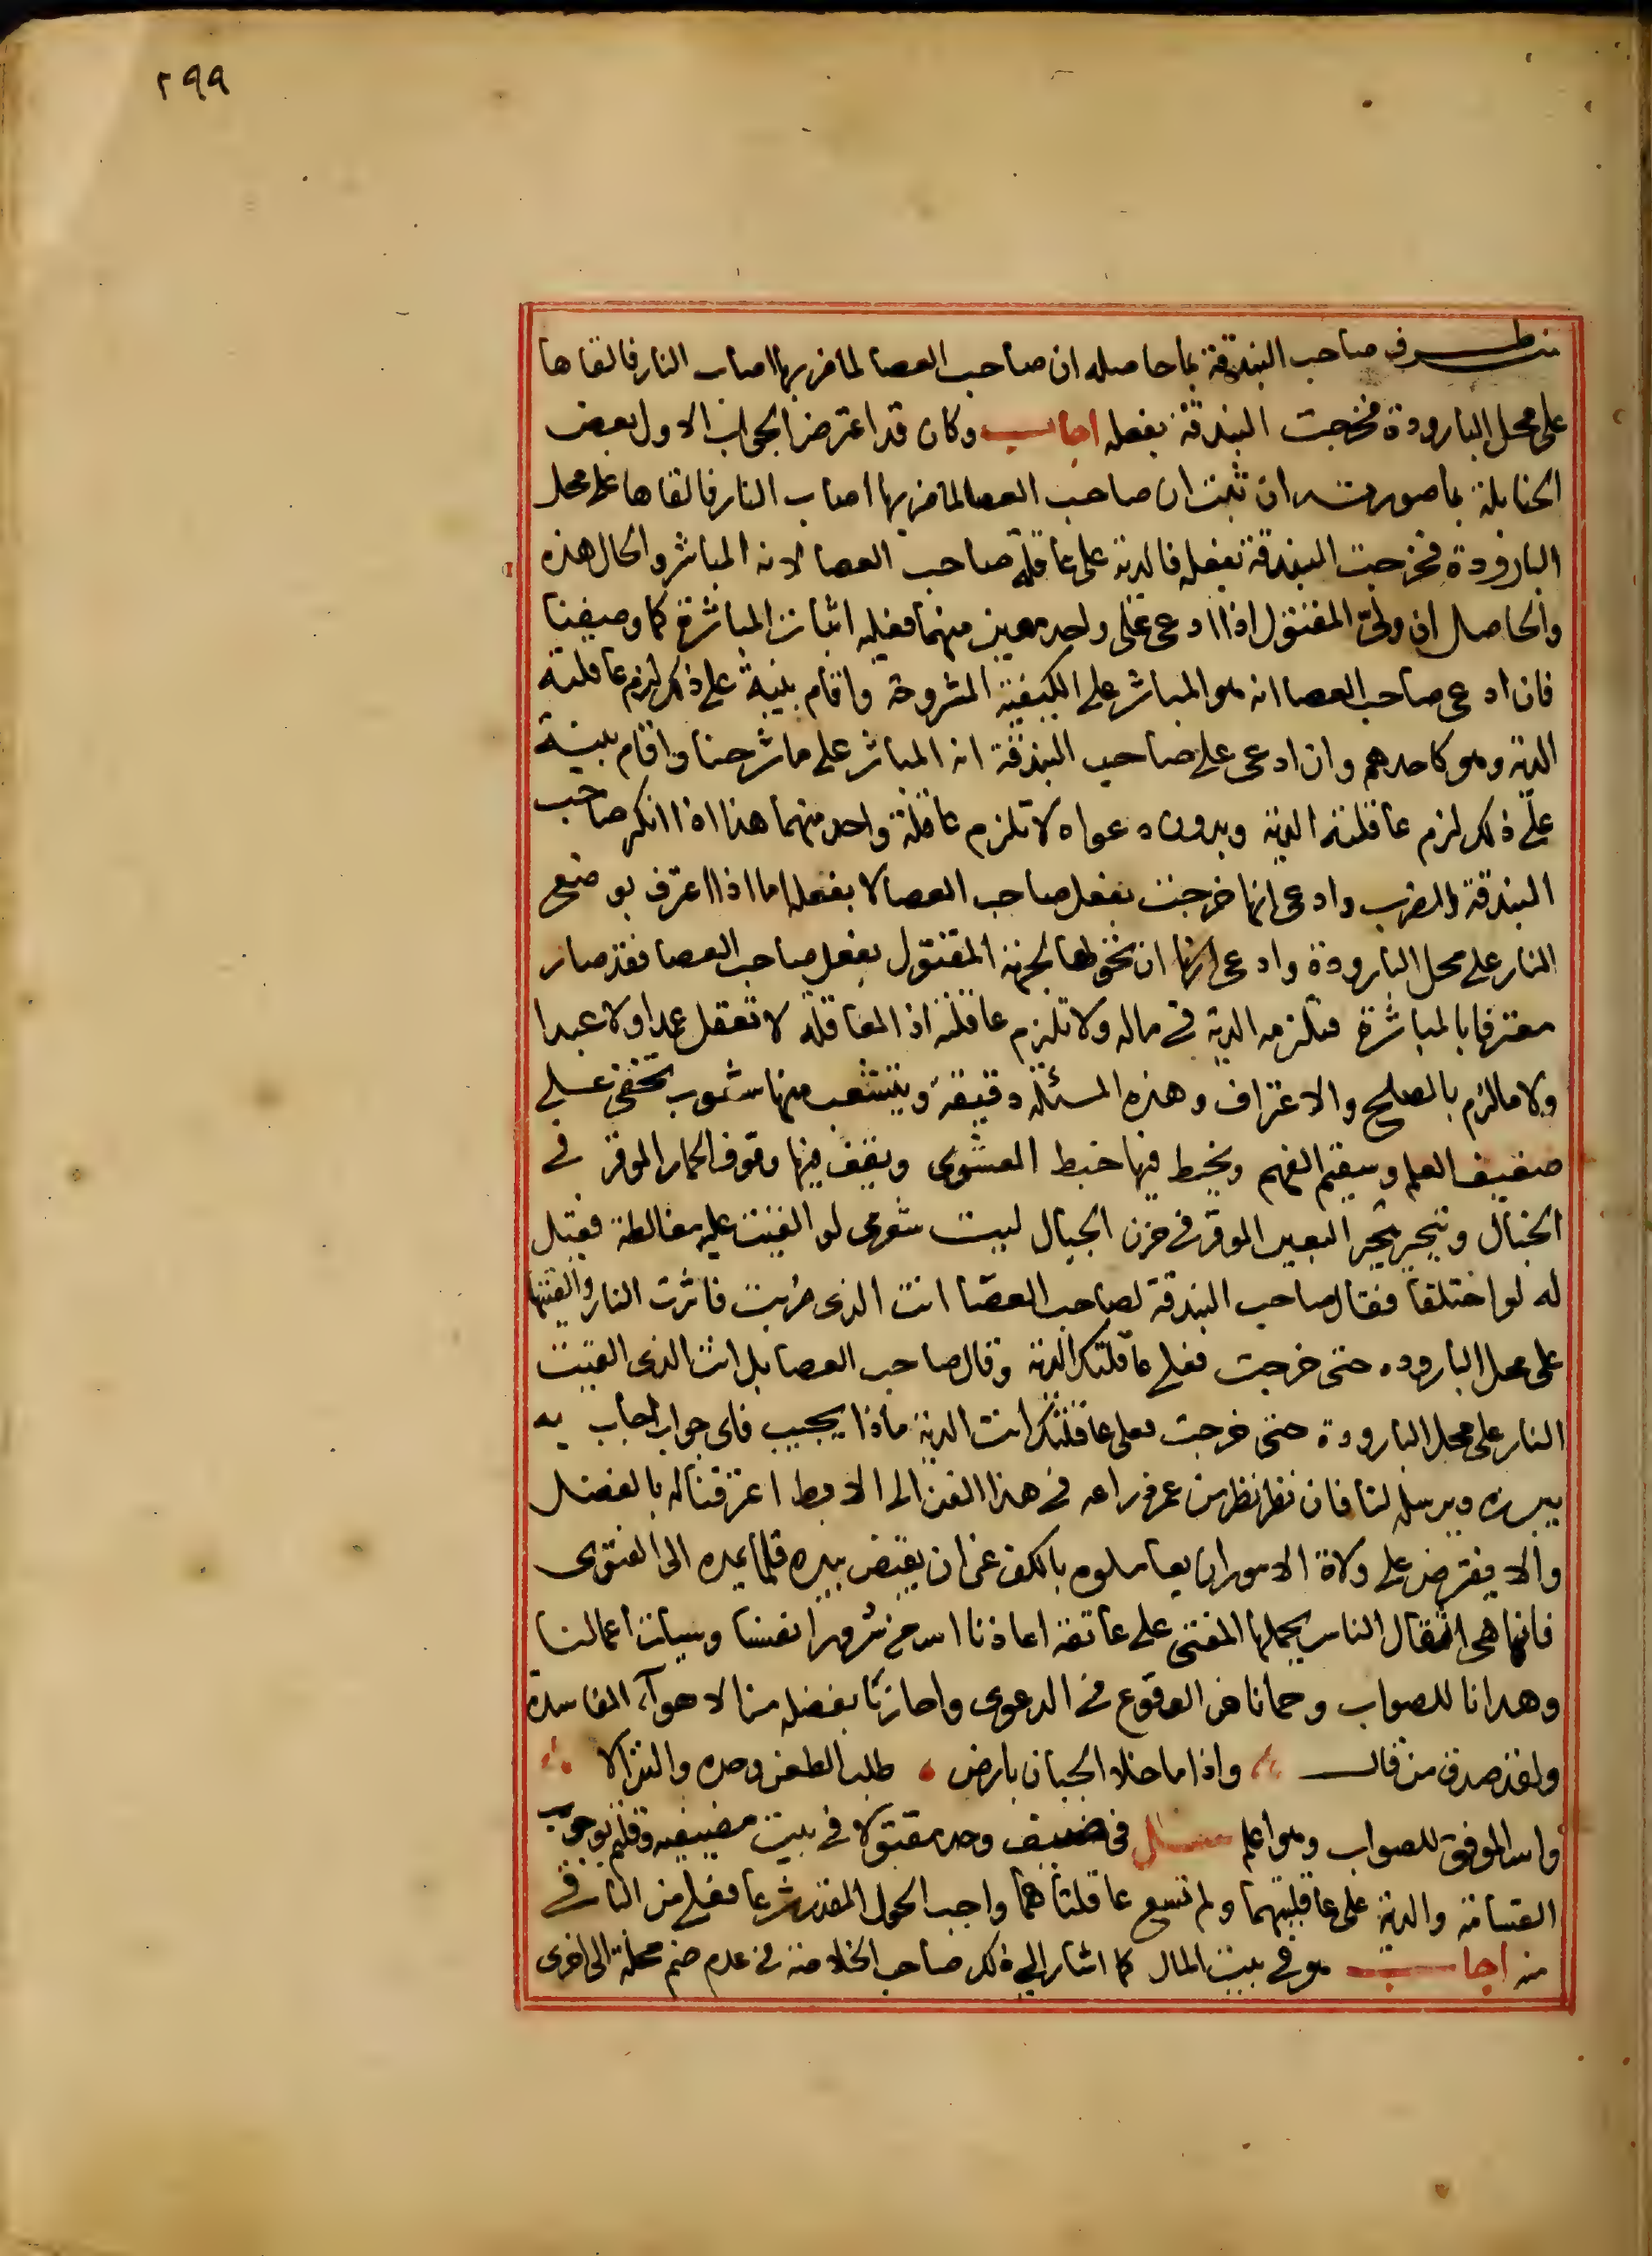 ٢٩٩
من طرف صاحب البندقة بما حاصله ان صاحب العصا لما ضربها اصاب النار فالقاها
على محل البارودة فخرجت البندقة بفعله اجاب وكان قد اعترض الجواب الاول بعض
الحنابلة بما صورته ان ثبت ان صاحب العصا لما ضربها اصاب النار فالقاها على محل
البارودة فخرجت البندقة بفعله فالدية على عاقلة صاحب العصا لانه المباشر والحال هذه
والحاصل ان ولى المقتول اذا ادعى على واحد معين منهما فعليه اثبات المباشرة كما وصفنا
فان ادعى صاحب العصا انه هو المباشر على الكيفية المشروحة واقام بينة على ذلك لزم عاقلته
الدية وهو كاحدهم وان ادعى على صاحب البندقة انه المباشر على ما شرحنا واقام بينة
على ذلك لزم عاقلته الدية وبدون دعواه لا تلزم عاقلة واحد منهما هذا اذا انكر صاحب
البندقة الضرب وادعى انها خرجت بفعل صاحب العصا لا بفعله اما اذا اعترف بوضع
النار على محل البارودة وادعى انها انحولها لجهة المقتول بفعل صاحب العصا فقد صار
معترفا بالمباشرة فتلزمه الدية في ماله ولا تلزم عاقلته اذ العاقلة لا تعقل عمدا ولا عبدا
ولا ما لزم بالصلح والاعتراف وهذه المسئلة دقيقة ويتشعب منها شعوب تخفى على
ضعيف العلم وسقيم الفهم ويخبط فيها خبط العشوى ويقف فيها وقوف الحمار الموقر في
الجبال ويتحير تحير البعير الموقر في حزن الجبال ليت شعرى لو القيت عليه مغالطة فقيل
له لو اختلفا فقال صاحب البندقة لصاحب العصا انت الذى ضربت فاثرت النار والقيتها
على محل البارودة حتى خرجت فعلى عاقلتك الدية وقال صاحب العصا بل انت الذى القيت
النار على محل البارودة حتى خرجت فعلى عاقلتك انت الدية ماذا يجيب فاى جواب اجاب به
يبرزه ويرسله لنا فان نظر نظر من عرف راعه في هذا الفن الى الابط اعترفنا له بالفضل
والا يفترض على ولاة الامور ان يعاملوه بالكف عن ان يقبض بيده قلما يمده الى الفتوى
فانها هى اثقال الناس يحملها المفتى على عاتقه اعاذنا الله من شرور انفسنا وسيات اعمالنا
وهدانا للصواب وحمانا من الوقوع في الدعوى واجارنا بفضله من الاهوآء الفاسدة
ولقد صدق من قال واذا ما خلا الجبان بارض طلب الطعن وحده والنزالا
والله الموفق للصواب وهو اعلم سئل في ضيف وجد مقتولا في بيت مضيفيه وقلتم بوجوب
القسامة والدية على عاقلتيهما ولم تسع عاقلتاهما واجب الحول المقدر شرعا فعلى من الباقى
منه اجاب هو في بيت المال كما اشار الى ذلك صاحب الخلاصة في عدم ضم محلة الى اخرى